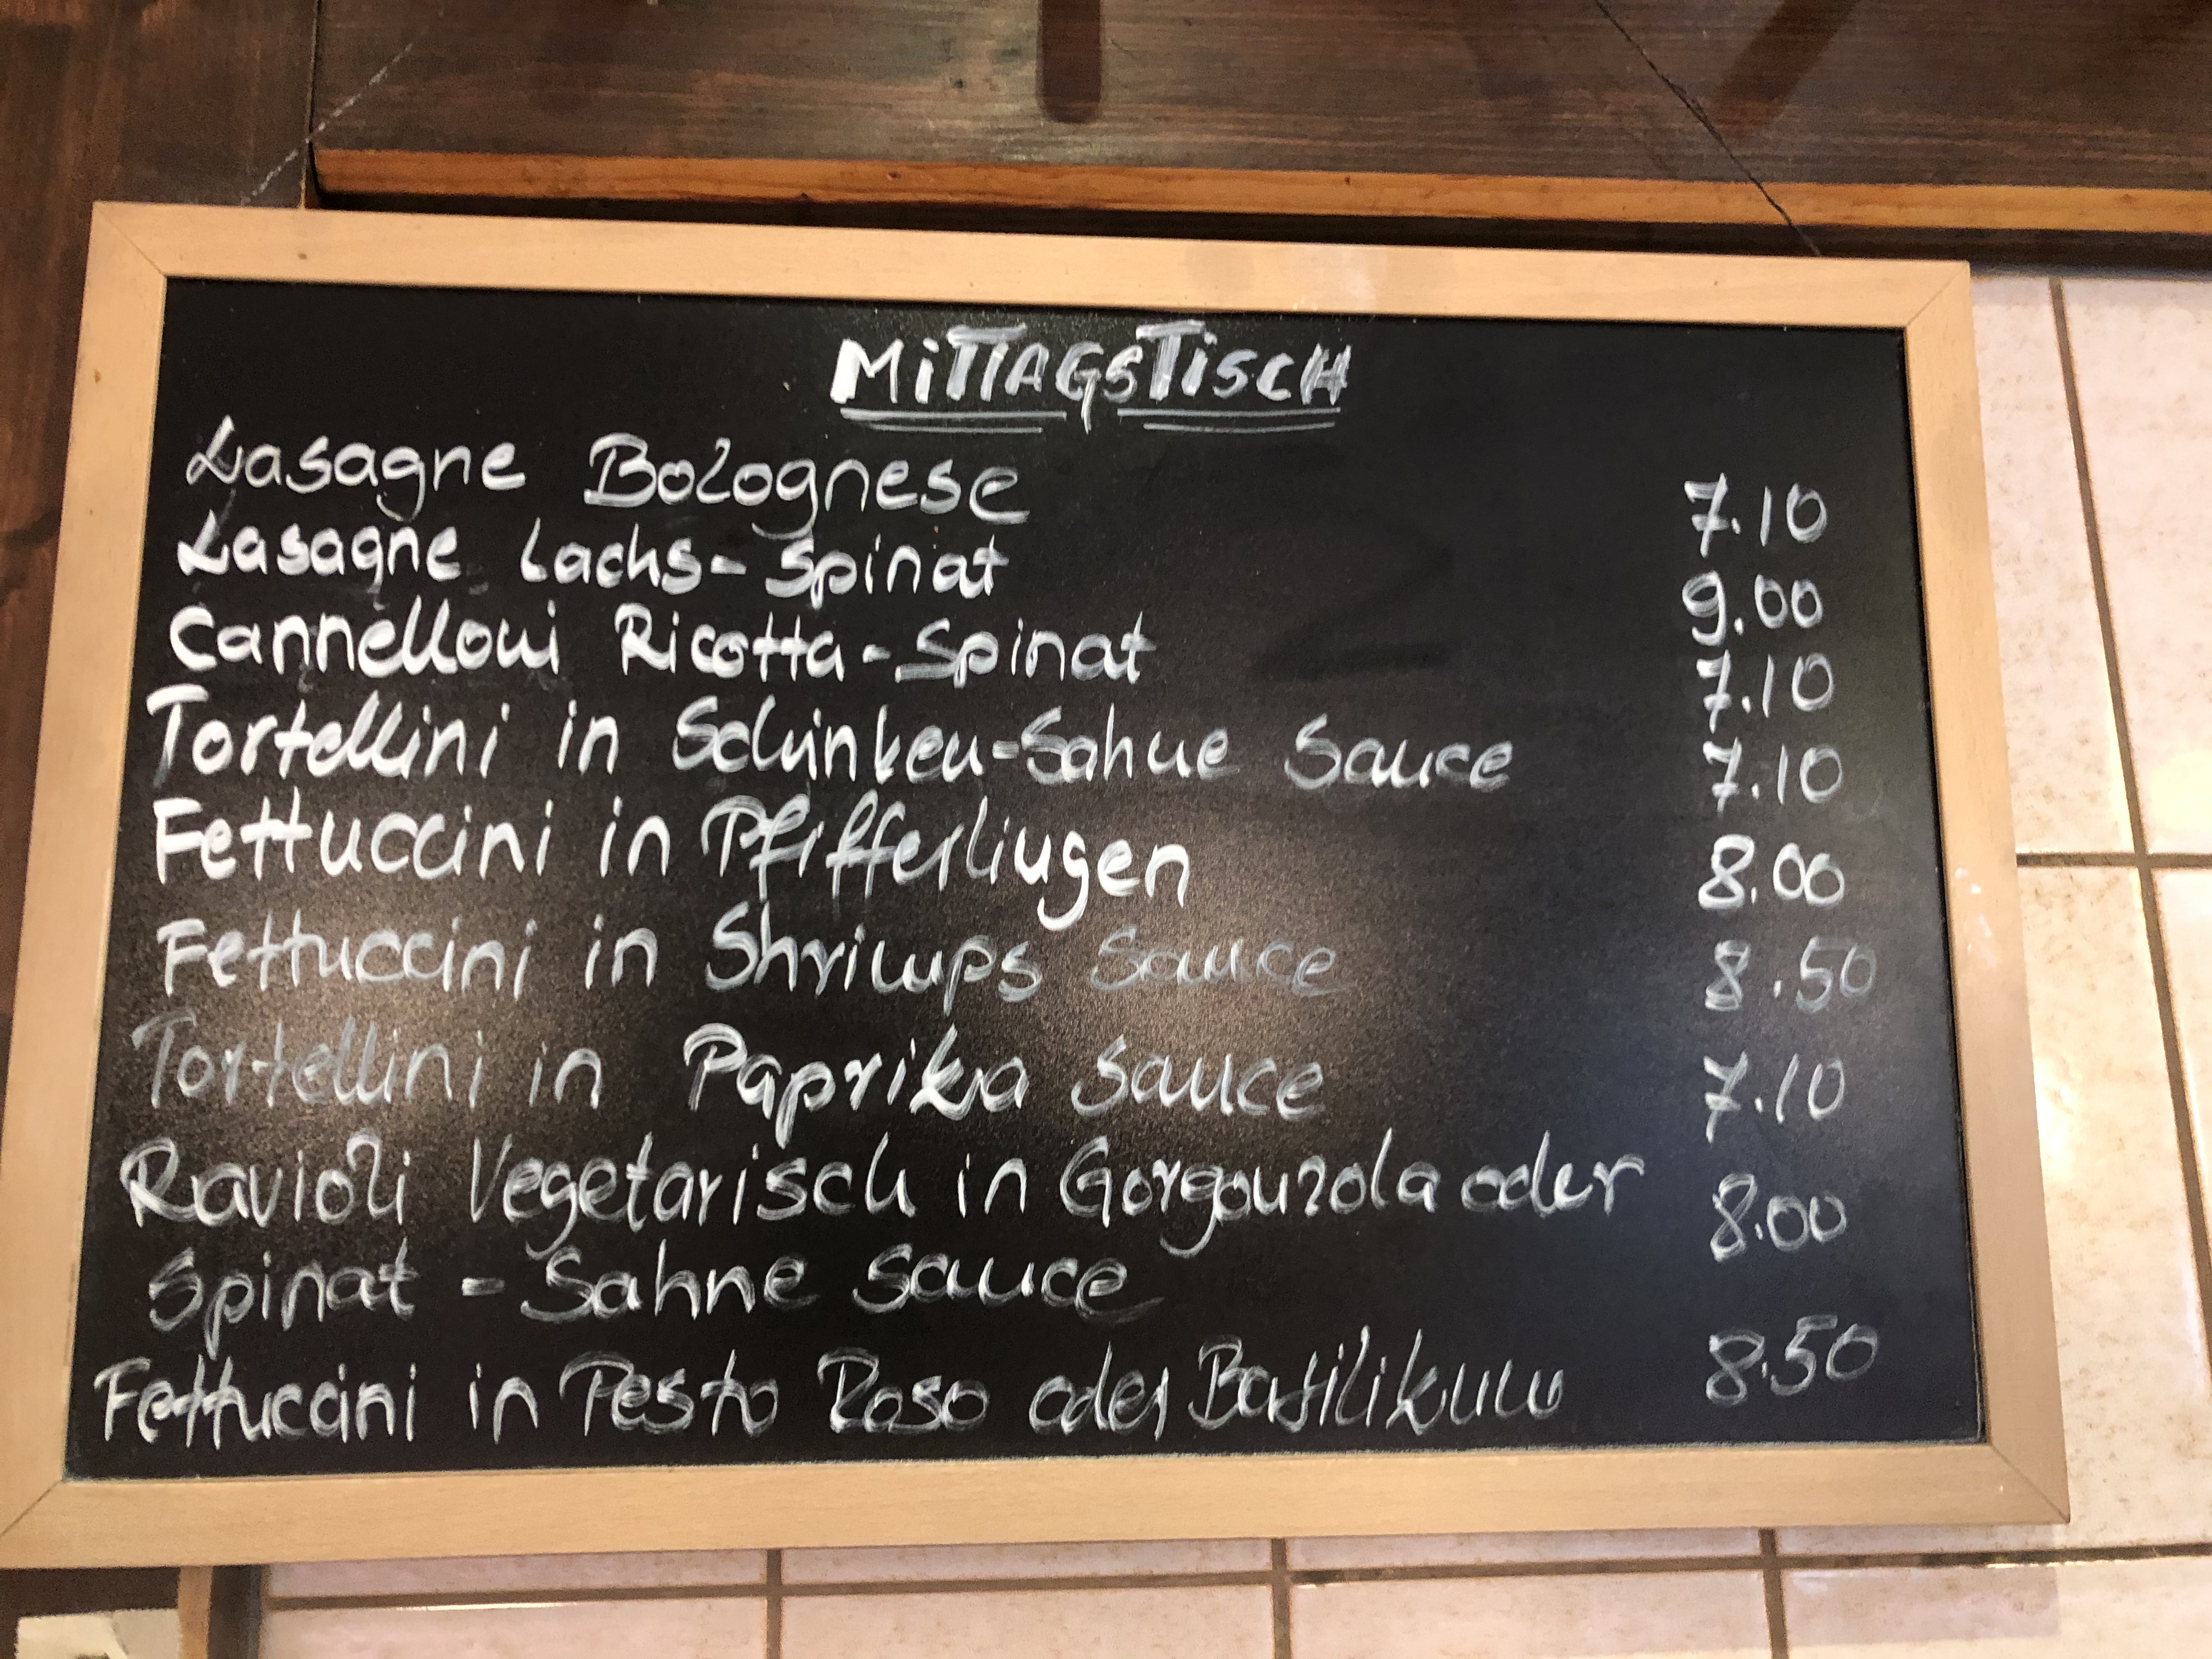 MiTTAGSTiSCH
Lasagne Bolognese 7.10
Lasagne Lachs-Spinat 9.00
Cannelloni Ricotta-Spinat 7.10
Tortellini in Schinken-Sahne Sauce 7.10
Fettuccini in Pfifferlingen 8.00
Fettuccini in Shrimps Sauce 8.50
Tortellini in Paprika Sauce 7.10
Ravioli Vegetarisch in Gorgonzola oder 8.00
Spinat - Sahne Sauce
Fettuccini in Pesto Roso oder Basilikum 8.50